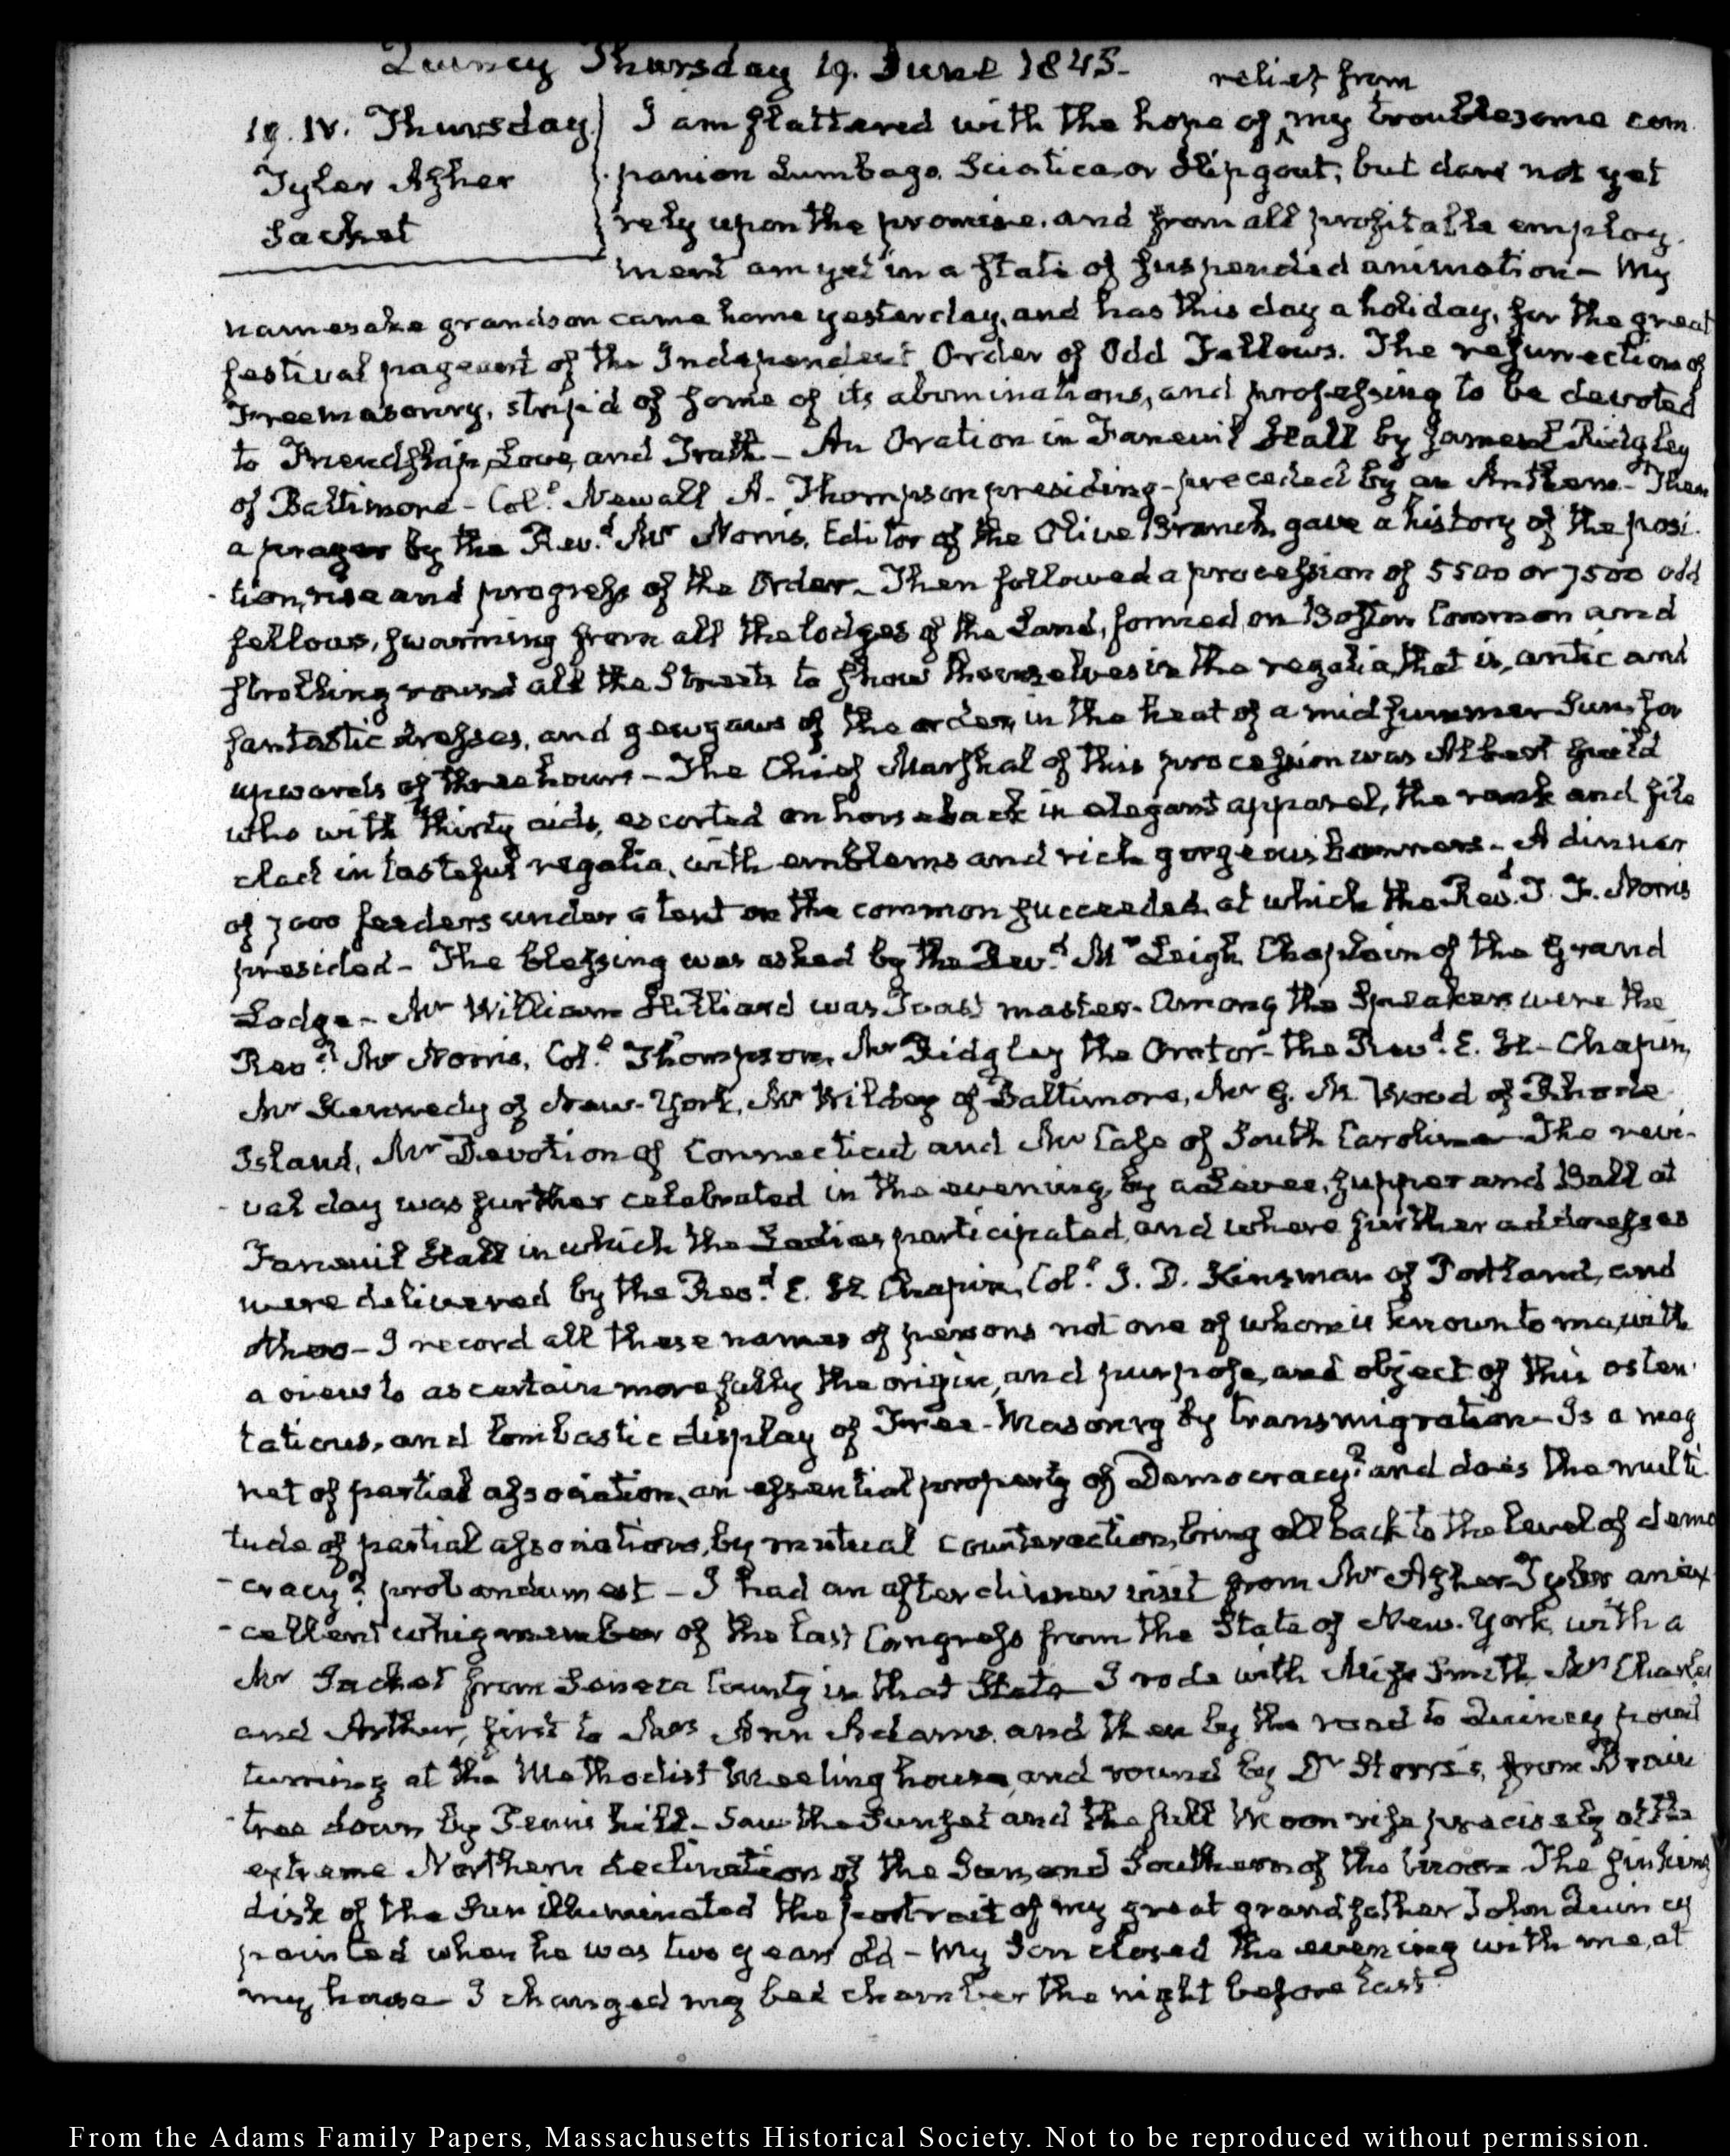 Quincy Thursday 19. June 1845.
relief from
19. IV. Thursday. I am flattered with the hope of my troublesome com
Tyler Asher panion Lumbago, Sciatica, or Hip gout; but dare not yet
Sacket rely upon the promise. and from all profitable employ
ment am yet in a state of suspended animation— My
namesake grandson came home yesterday, and has this day a holiday, for the great
festival pageant of the Independent Order of Odd Fellows. The resurrection of
Freemasonry, strip'd of some of its abominations, and professing to be devoted
to Friendship, Love, and Truth— An Oration in Faneuil Hall by James L Ridgley
of Baltimore— Col.l Newall A. Thompson presiding— preceded by an Anthem— Then
a prayer by the Rev.d Mr Norris, Editor of the Olive Branch, gave a history of the posi-
-tion, rise and progress of the Order— Then followed a procession of 5500 or 7500 odd
fellows, swarming from all the lodges of the Land, formed on Boston Common and
strolling round all the Streets to show themselves in the regalia, that is, antic and
fantastic dresses, and gewgaws of the order, in the heat of a midsummer Sun, for
upwards of three hours— The Chief Marshal of this procession was Albert Guild
who with thirty aids, escorted on horseback in elegant apparel, the rank and file
clad in tasteful regalia, with emblems and rich gorgeous banners— A dinner
of 7000 feeders under a tent on the common succeeded, at which the Revd. T. F. Norris
presided— The blessing was asked by the Rev.d Mr Leigh Chaplain of the Grand
Lodge— Mr William Hilliard was Toast master. Among the Speakers were the
Rev.d Mr Norris, Col.l Thompson, Mr Ridgley the Orator— the Revd. E. H. Chapin,
Mr Kennedy of New-York, Mr Wildey of Baltimore, Mr G. M. Wood of Rhode
Island, Mr Devotion of Connecticut and Mr Case of South Carolina— The revi-
-val day was further celebrated in the evening, by a Levee, supper and Ball at
Faneuil Hall in which the Ladies participated, and where further addresses
were delivered by the Rev.d E. H Chapin, Col.l J. D. Kinsman of Portland, and
others— I record all these names of persons not one of whom is known to me, with
a view to ascertain more fully the origin, and purpose, and object of this osten-
tatious, and bombastic display of Free-Masonry by transmigration— Is a mag
net of partial association, an essential property of Democracy? and does the multi-
tude of partial associations, by mutual counteraction, bring all back to the level of demo
-cracy? probandum est— I had an after dinner visit from Mr Asher Tyler an ex
-cellent whig member of the last Congress from the State of New-York, with a
Mr Sacket from Seneca County in that State I rode with Miss Smith, Mrs Charles
and Arthur, first to Mrs Ann Adams, and then by the road to Quincy point
turning at the Methodist Meeting house, and round by Dr Storrs's, from Brain
-tree down by Penns hill— Saw the Sunset and the full Moon rise precisely at the
extreme Northern declination of the Sun, and Southern of the Moon The sinking
disk of the Sun illuminated the portrait of my great grandfather John Quincy
painted when he was two years old— My Son closed the evening with me, at
my house— I changed my bed chamber the night before last.
From the Adams Family Papers, Massachusetts Historical Society. Not to be reproduced without permission.